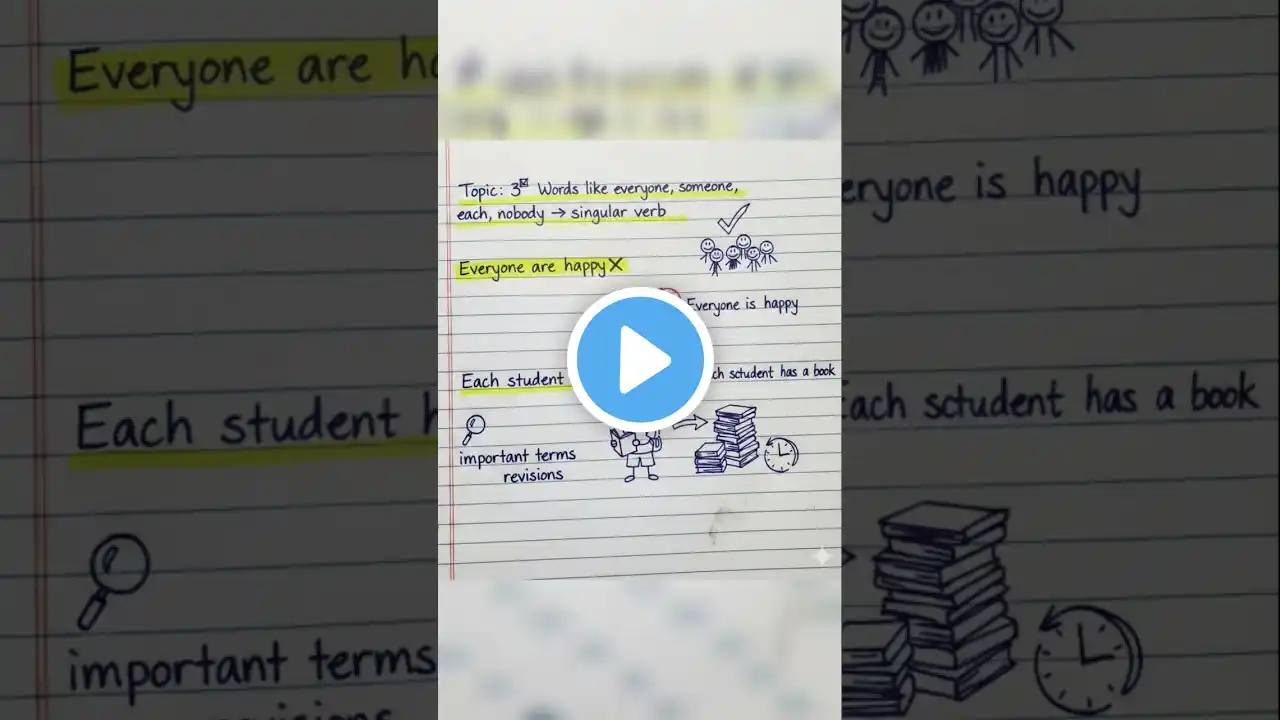 Topic: 3 Words like everyone, someone,
each, nobody → singular verb
Everyone are happy X
Everyone is happy
Each student
sctudent has a book
important terms
revisions
Everyone are
is happy
Each student
Each sctudent has a book
important terms
revisions